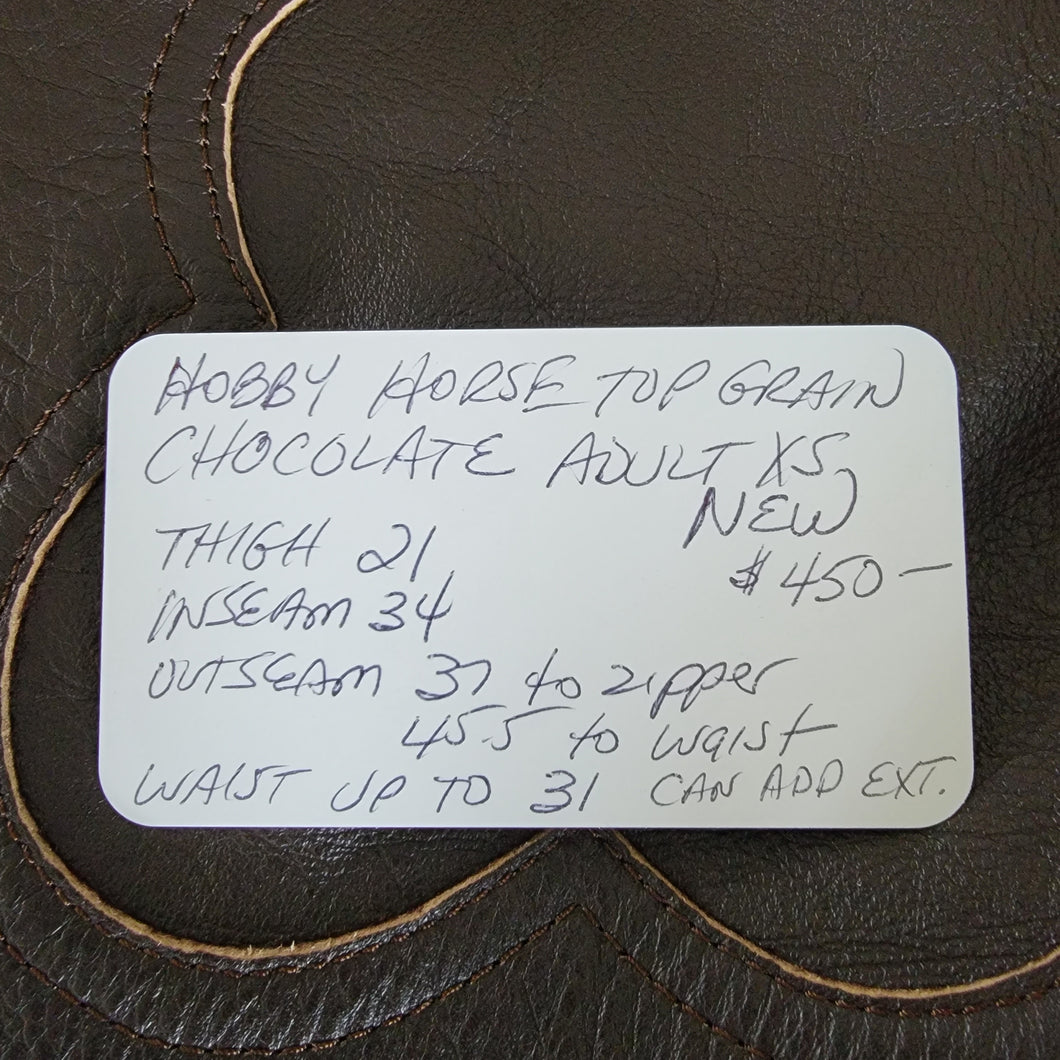 HOBBY HORSE TOP GRAIN
CHOCOLATE ADULT XS
NEW
THIGH 21
$450—
INSEAM 34
OUTSEAM 37 to zipper
45.5 to waist
WAIST UP TO 31 CAN ADD EXT.